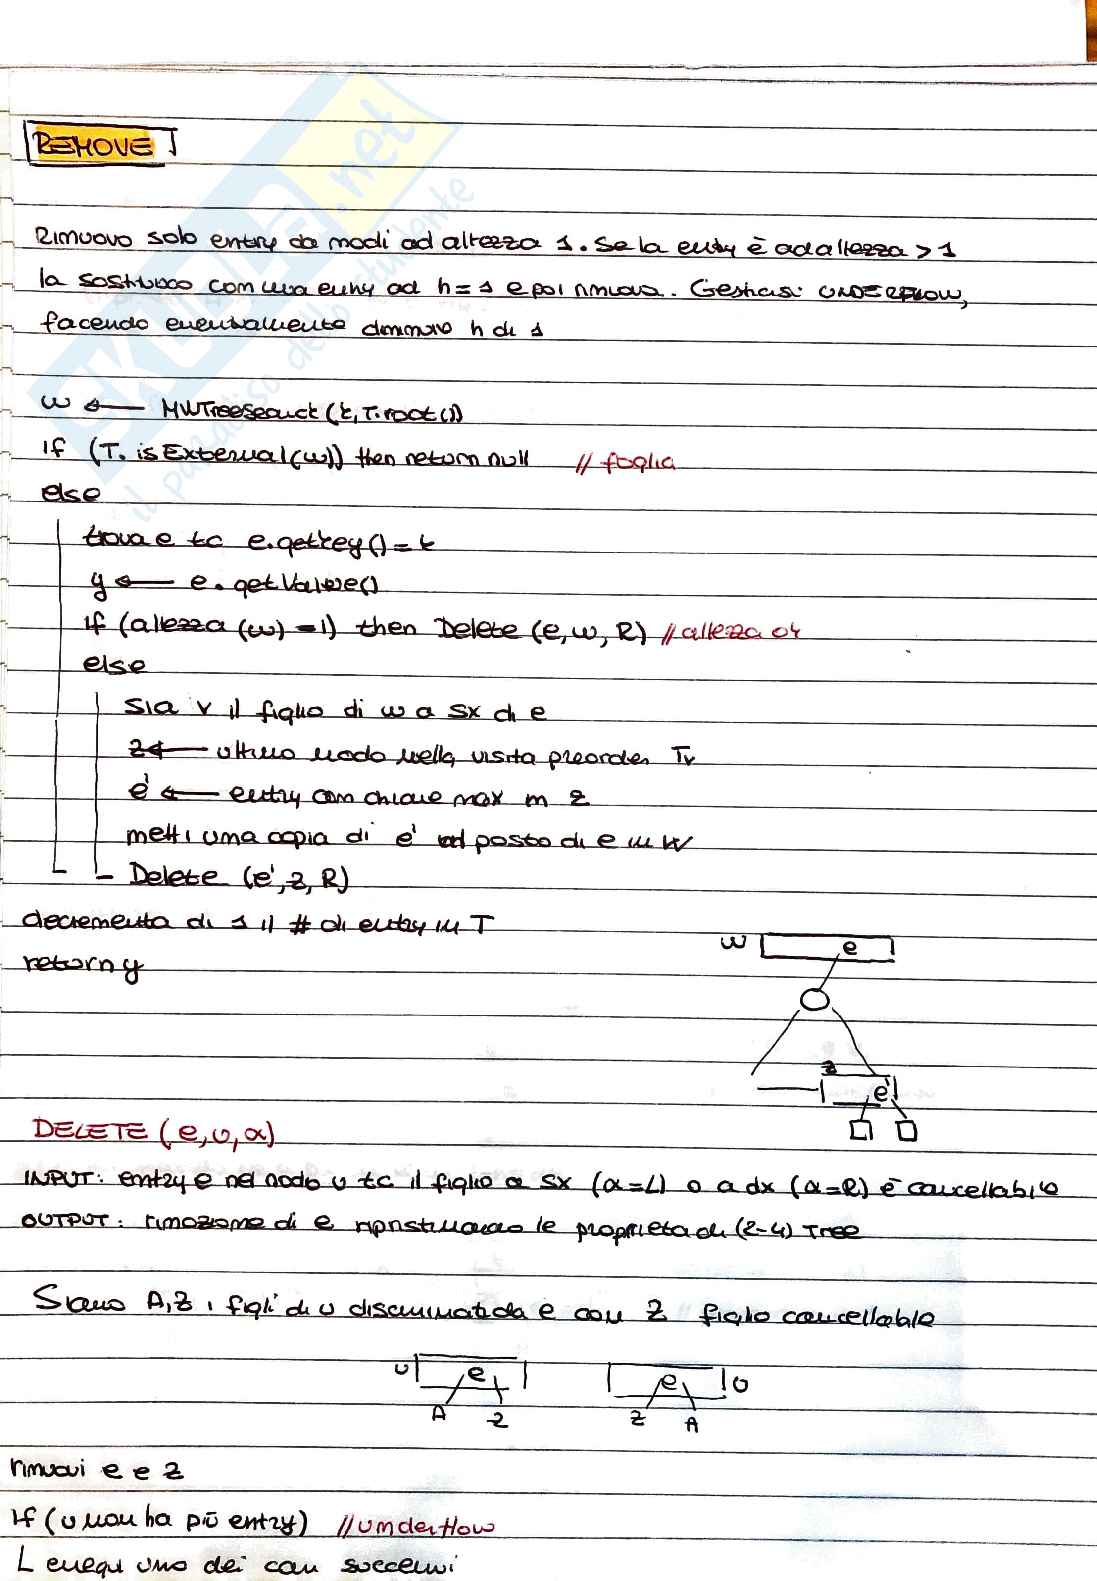 REMOVE
Rimuovo solo entry da nodi ad altezza 1. Se la entry è ad altezza > 1
la sostituisco con una entry ad h = 1 e poi rimuovo. Gestiasi UNDERFLOW,
facendo eventualmente diminuire h di 1
w ← MWTreeSearch (k, T.root())
if (T. isExternal(w)) then return null // foglia
else
trova e tc e.getkey() = k
y ← e. getValue()
if (altezza (w) = 1) then Delete (e, w, R) // altezza ok
else
Sia v il figlio di w a sx di e
z ← ultimo nodo nella visita preorder Tv
e' ← entry con chiave max in z
metti una copia di e' al posto di e in W
Delete (e', z, R)
decrementa di 1 il # di entry in T
return y
w e
z e'
DELETE (e, υ, α)
INPUT: entry e nel nodo υ tc il figlio a sx (α = L) o a dx (α = R) è cancellabile
OUTPUT: rimozione di e ripristinando le proprietà di (2-4) Tree
Siano A, Z i figli di υ discriminati da e con Z figlio cancellabile
υ e e υ
A Z Z A
rimuovi e e z
if (υ non ha più entry) // underflow
L esegui uno dei casi successivi
SKUOLA.net
il paradiso dello studente